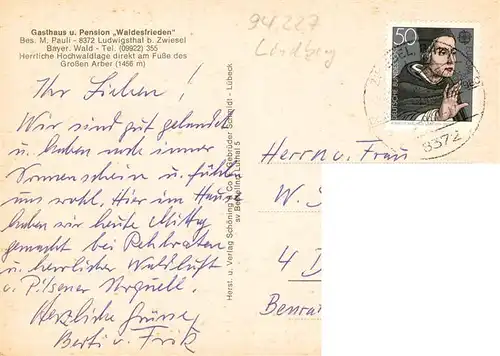 Gasthaus u. Pension „Waldesfrieden"
Bes. M. Pauli - 8372 Ludwigsthal b. Zwiesel
Bayer. Wald - Tel. (09922) 355
Herrliche Hochwaldlage direkt am Fuße des
Großen Arber (1456 m)
94.227
Lindberg
50
DEUTSCHE BUNDESPOST
8372
Ihr Lieben!
Wir sind gut gelandet
u. haben noch immer
Sonnenschein u. fühlen
uns wohl. Hier im Haus
haben wir heute Mittag
gemacht bei Rehbraten
u. herrlicher Waldluft
u. Pilsener Urquell.
Herzliche Grüße,
Berti u. Fritz
Herst. u. Verlag Schöning & Co + Gebrüder Schmidt - Lübeck
Herrn u. Frau
W.
4 D
Benra